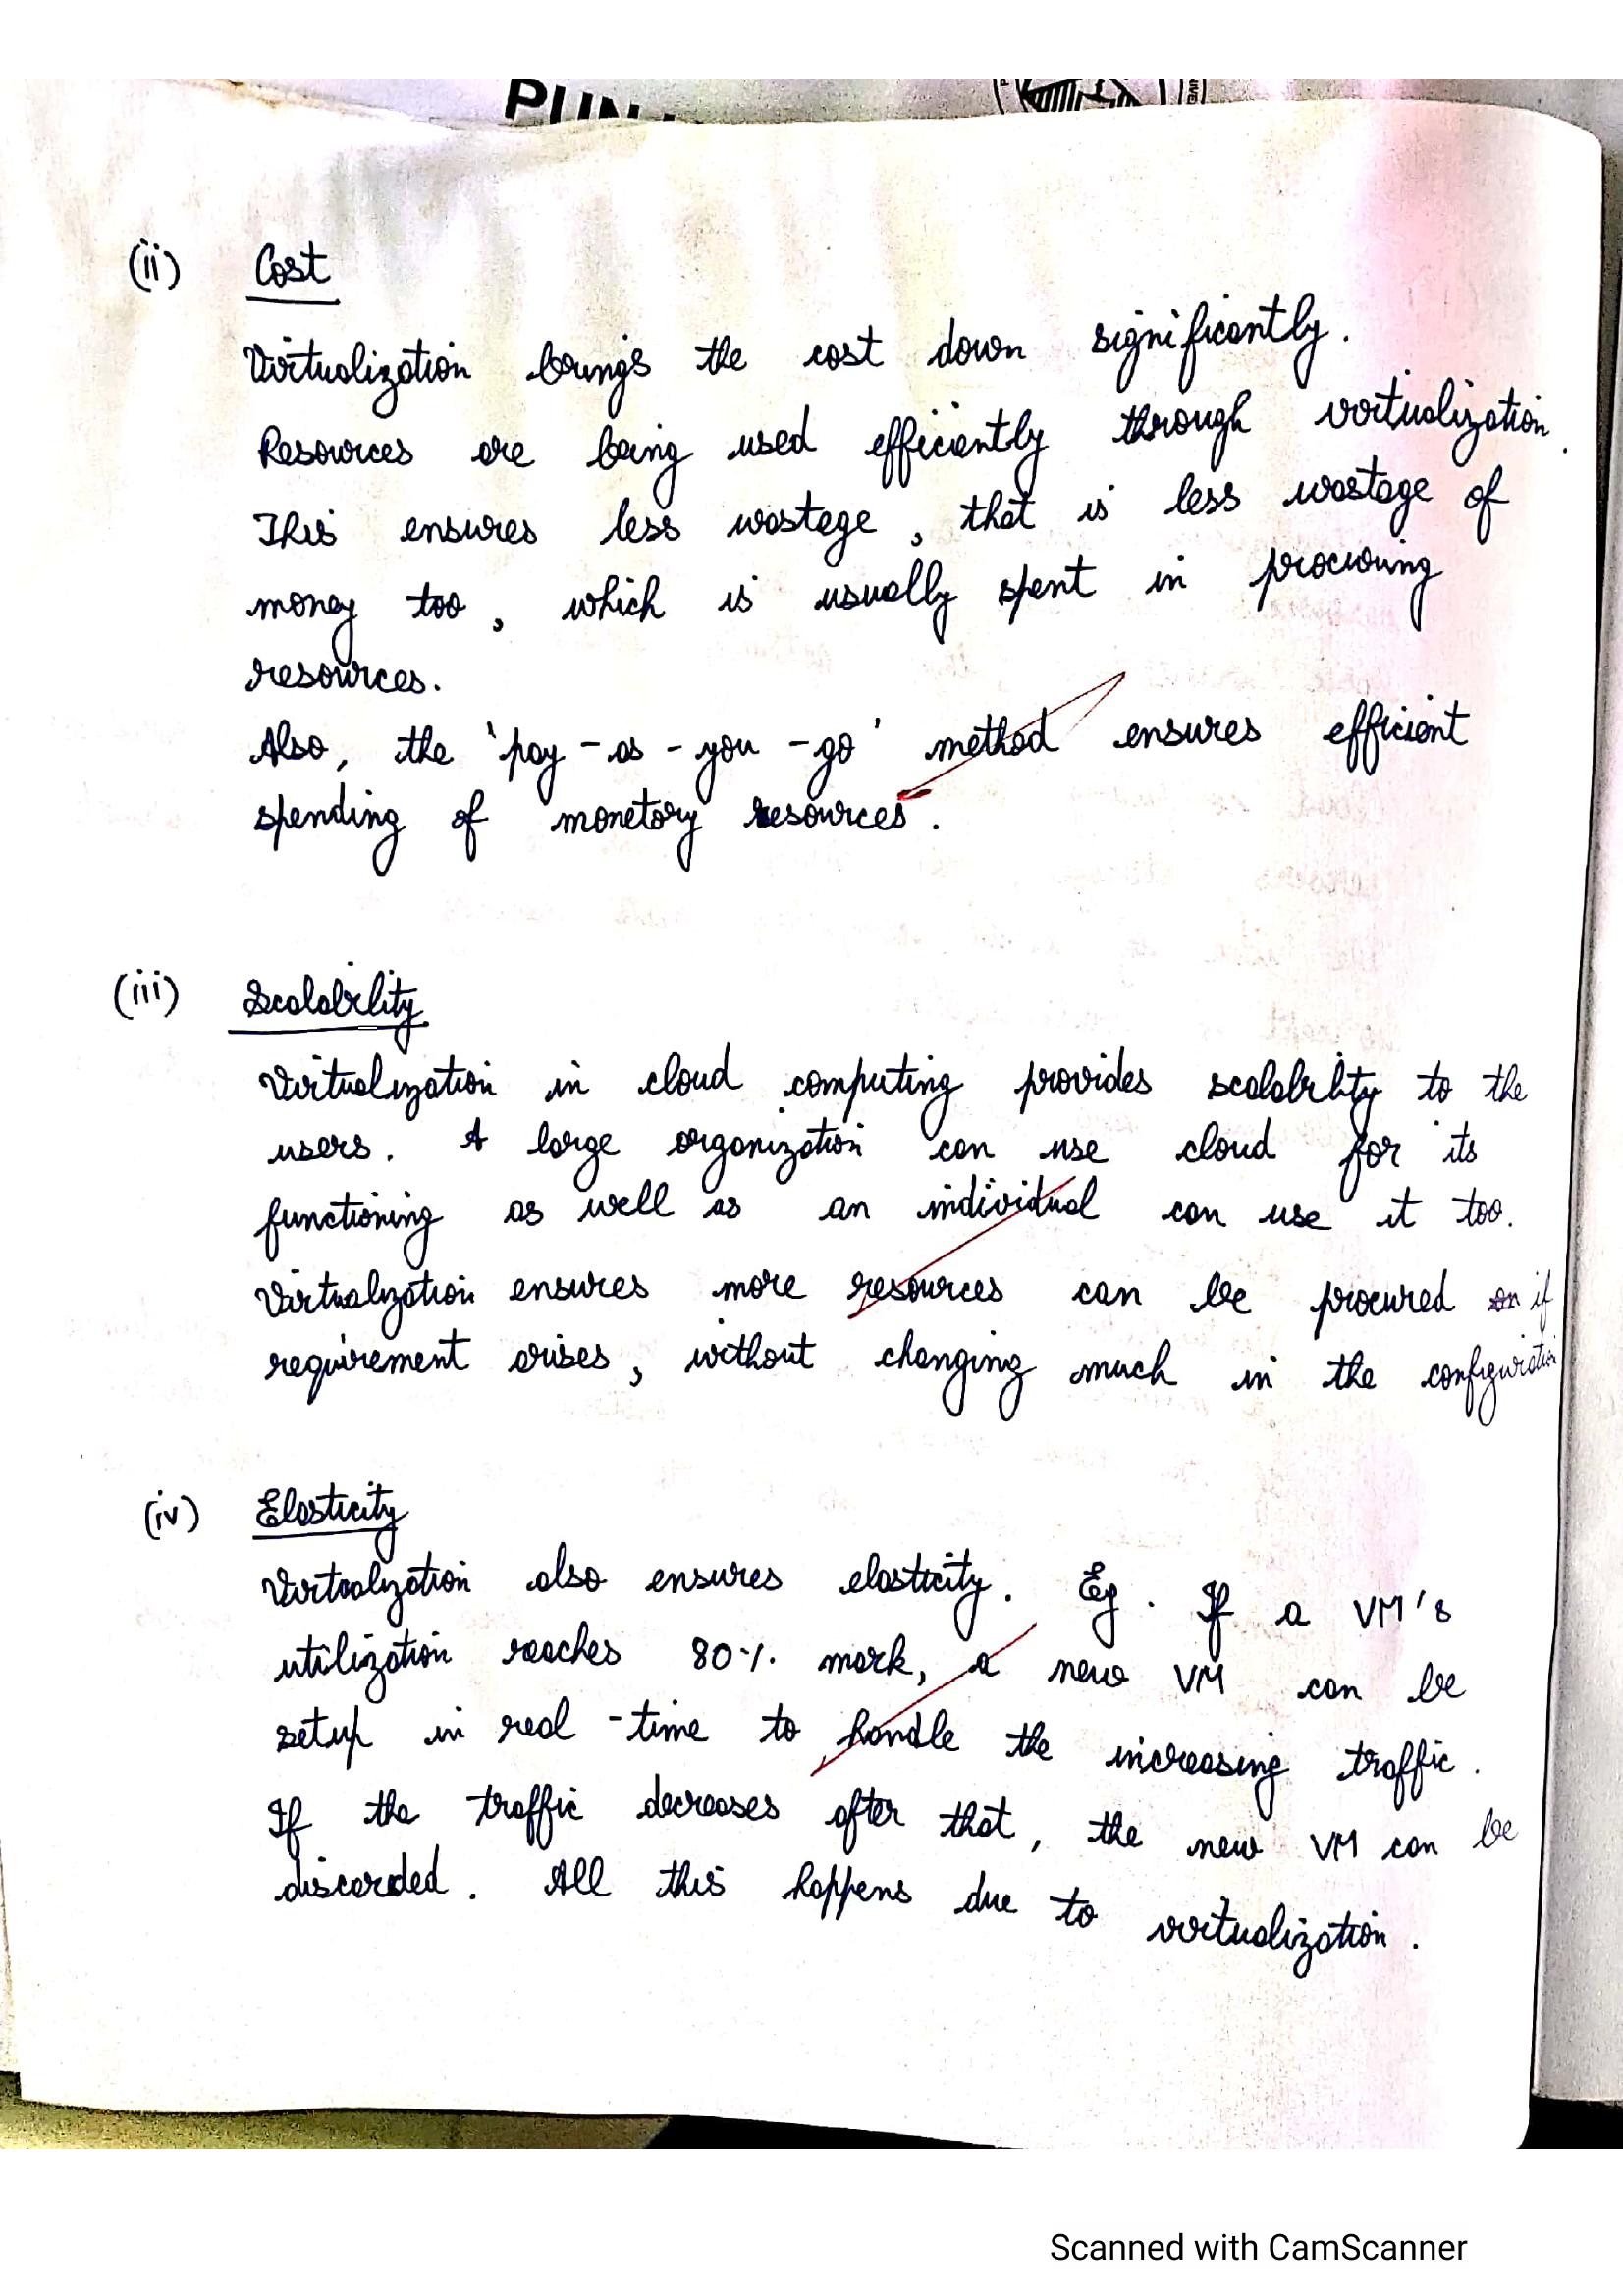 PUN
(ii) Cost
Virtualization brings the cost down significantly.
Resources are being used efficiently through virtualization.
This ensures less wastage, that is less wastage of
money too, which is usually spent in procuring
resources.
Also, the 'pay-as-you-go' method ensures efficient
spending of monetary resources.
(iii) Scalability
Virtualization in cloud computing provides scalability to the
users. A large organization can use cloud for its
functioning as well as an individual can use it too.
Virtualization ensures more resources can be procured if
requirement arises, without changing much in the configuration
(iv) Elasticity
Virtualization also ensures elasticity. Eg. If a VM's
utilization reaches 80% mark, a new VM can be
setup in real-time to handle the increasing traffic.
If the traffic decreases after that, the new VM can be
discarded. All this happens due to virtualization.
Scanned with CamScanner